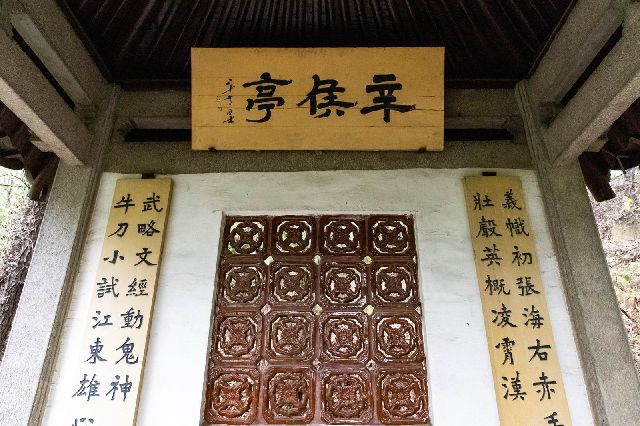 辛侯亭
義幟初張海右赤手
壯聲英概凌霄漢
牛刀小試江東雄
武略文經動鬼神